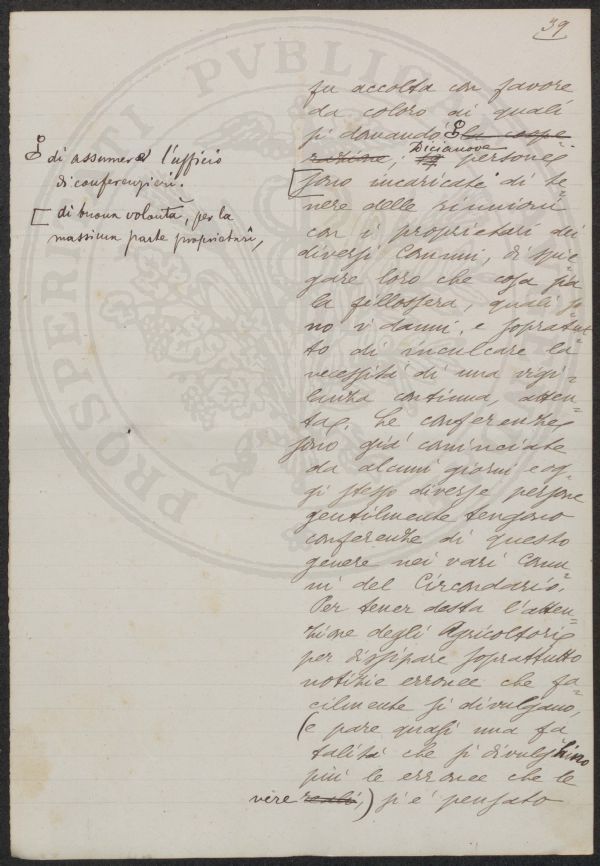 39
fu accolta con favore
da coloro ai quali
si domandò la coope
razione; Dicianove persone
sono incaricate di te
nere delle riunioni
con i proprietari dei
diversi Comuni, di spie
gare loro che cosa sia
la fillossera, quali so
no i danni, e soprattut
to di inculcare la
necessità di una vigi=
lanza continua, atten=
ta. Le conferenze
sono già cominciate
da alcuni giorni e og
gi stesso diverse persone
gentilmente tengono
conferenze di questo
genere nei vari Comu
ni del Circondario.
Per tener desta l'atten=
zione degli Agricoltori e
per dissipare soprattutto
notizie erronee che fa=
cilmente si divulgano,
(e pare quasi una fa
talità che si divulghino
più le erronee che le
vere reali,) si è pensato
di assumere l'ufficio
di conferenzieri.
[ di buona volontà, per la
massima parte proprietari,
PROSPERITATI PVBLICAE